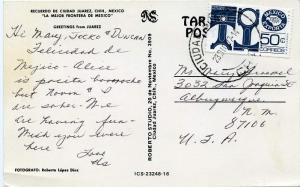 RECUERDO DE CIUDAD JUAREZ, CHIH., MEXICO
"LA MEJOR FRONTERA DE MEXICO"
GREETINGS from JUAREZ
Hi Mary, Jocko & Duncan
Felicidad de
Mejico - Alice
is poquita borracho
but Noon & I
are sober - We
are having fun -
Wish you were
here
Love
FOTOGRAFO: Roberto López Díaz
ROBERTO STUDIO, 20 de Noviembre No. 2808
Ciudad Juárez, Chih., Mexico
ICS-23248-16
TAR
POS
50¢
Ms Mary
3032 San Joaquin
Albuquerque
N. M.
87106
U. S. A.